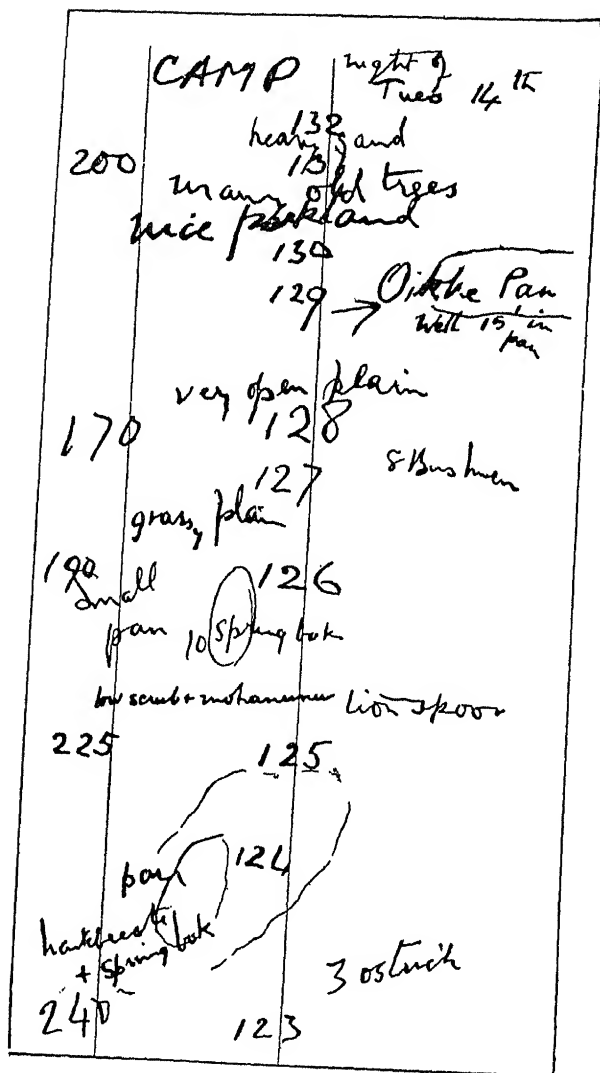 CAMP night of
Tues 14th
132
heavy sand
200 131
many old trees
nice parkland
130
129 → Oikhe Pan
Well 15' in
pan
very open plain
170 128
127 8 Bushmen
grassy plain
190 126
Small
pan 10 Springbok
low scrub + lion spoor
225 125
124
pan
hartebeeste
+ Springbok
3 ostrich
240 123